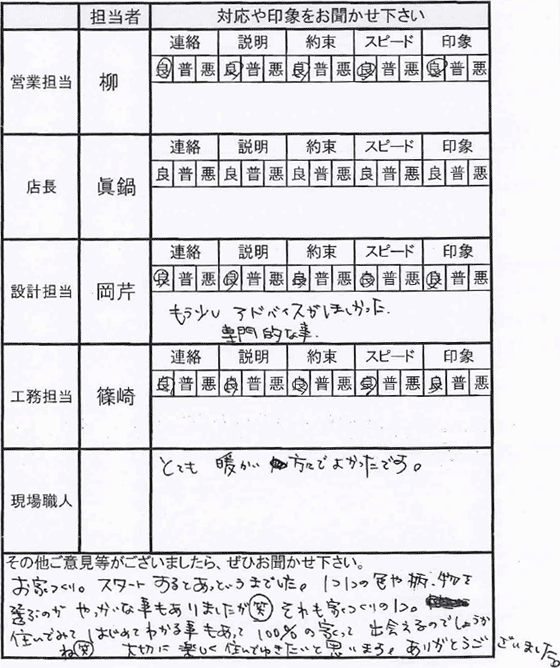 担当者 対応や印象をお聞かせ下さい
連絡 説明 約束 スピード 印象
営業担当 柳 良 普 悪 良 普 悪 良 普 悪 良 普 悪 良 普 悪
連絡 説明 約束 スピード 印象
店長 眞鍋 良 普 悪 良 普 悪 良 普 悪 良 普 悪 良 普 悪
連絡 説明 約束 スピード 印象
設計担当 岡芹 良 普 悪 良 普 悪 良 普 悪 良 普 悪 良 普 悪
もう少し アドバイスがほしかった.
専門的な事.
連絡 説明 約束 スピード 印象
工務担当 篠崎 良 普 悪 良 普 悪 良 普 悪 良 普 悪 良 普 悪
現場職人 とても 暖かい 方々でよかったです。
その他ご意見等がございましたら、ぜひお聞かせ下さい。
お家づくり。スタートするとあっというまでした。1つ1つの色や柄、物を
選ぶのが やっかいな事もありましたが 笑 それも家づくりの1つ。
住んでみて はじめてわかる事もあって 100%の家って 出会えるのでしょうか
ね 笑 大切に 楽しく 住んでゆきたいと思います。ありがとうございました